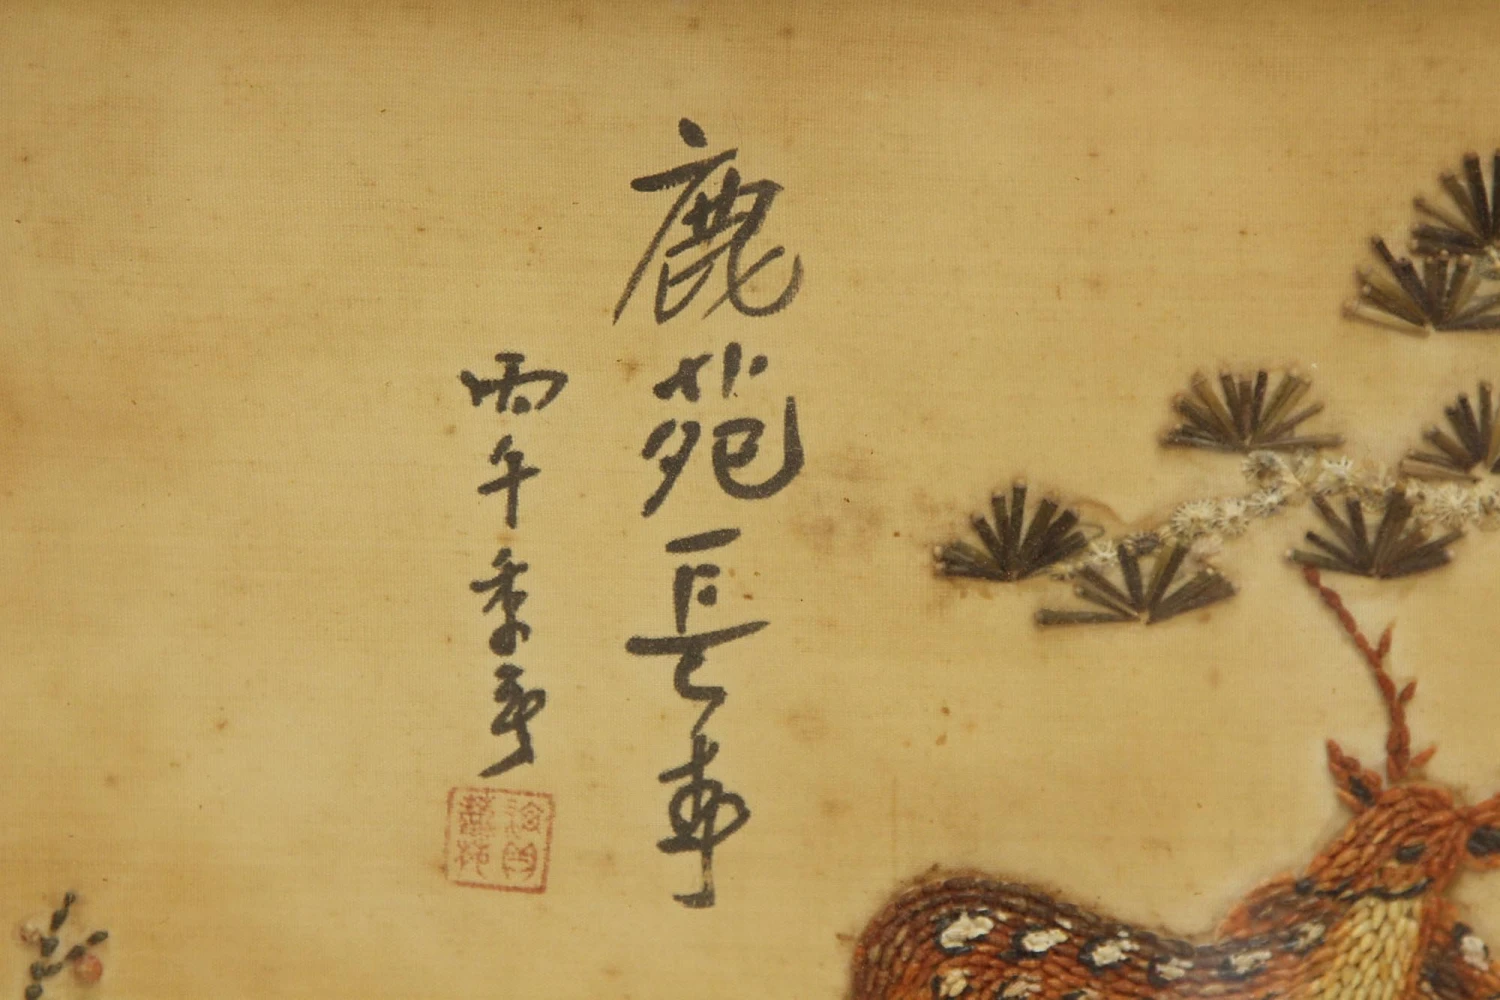 鹿苑長春
丙午季夏